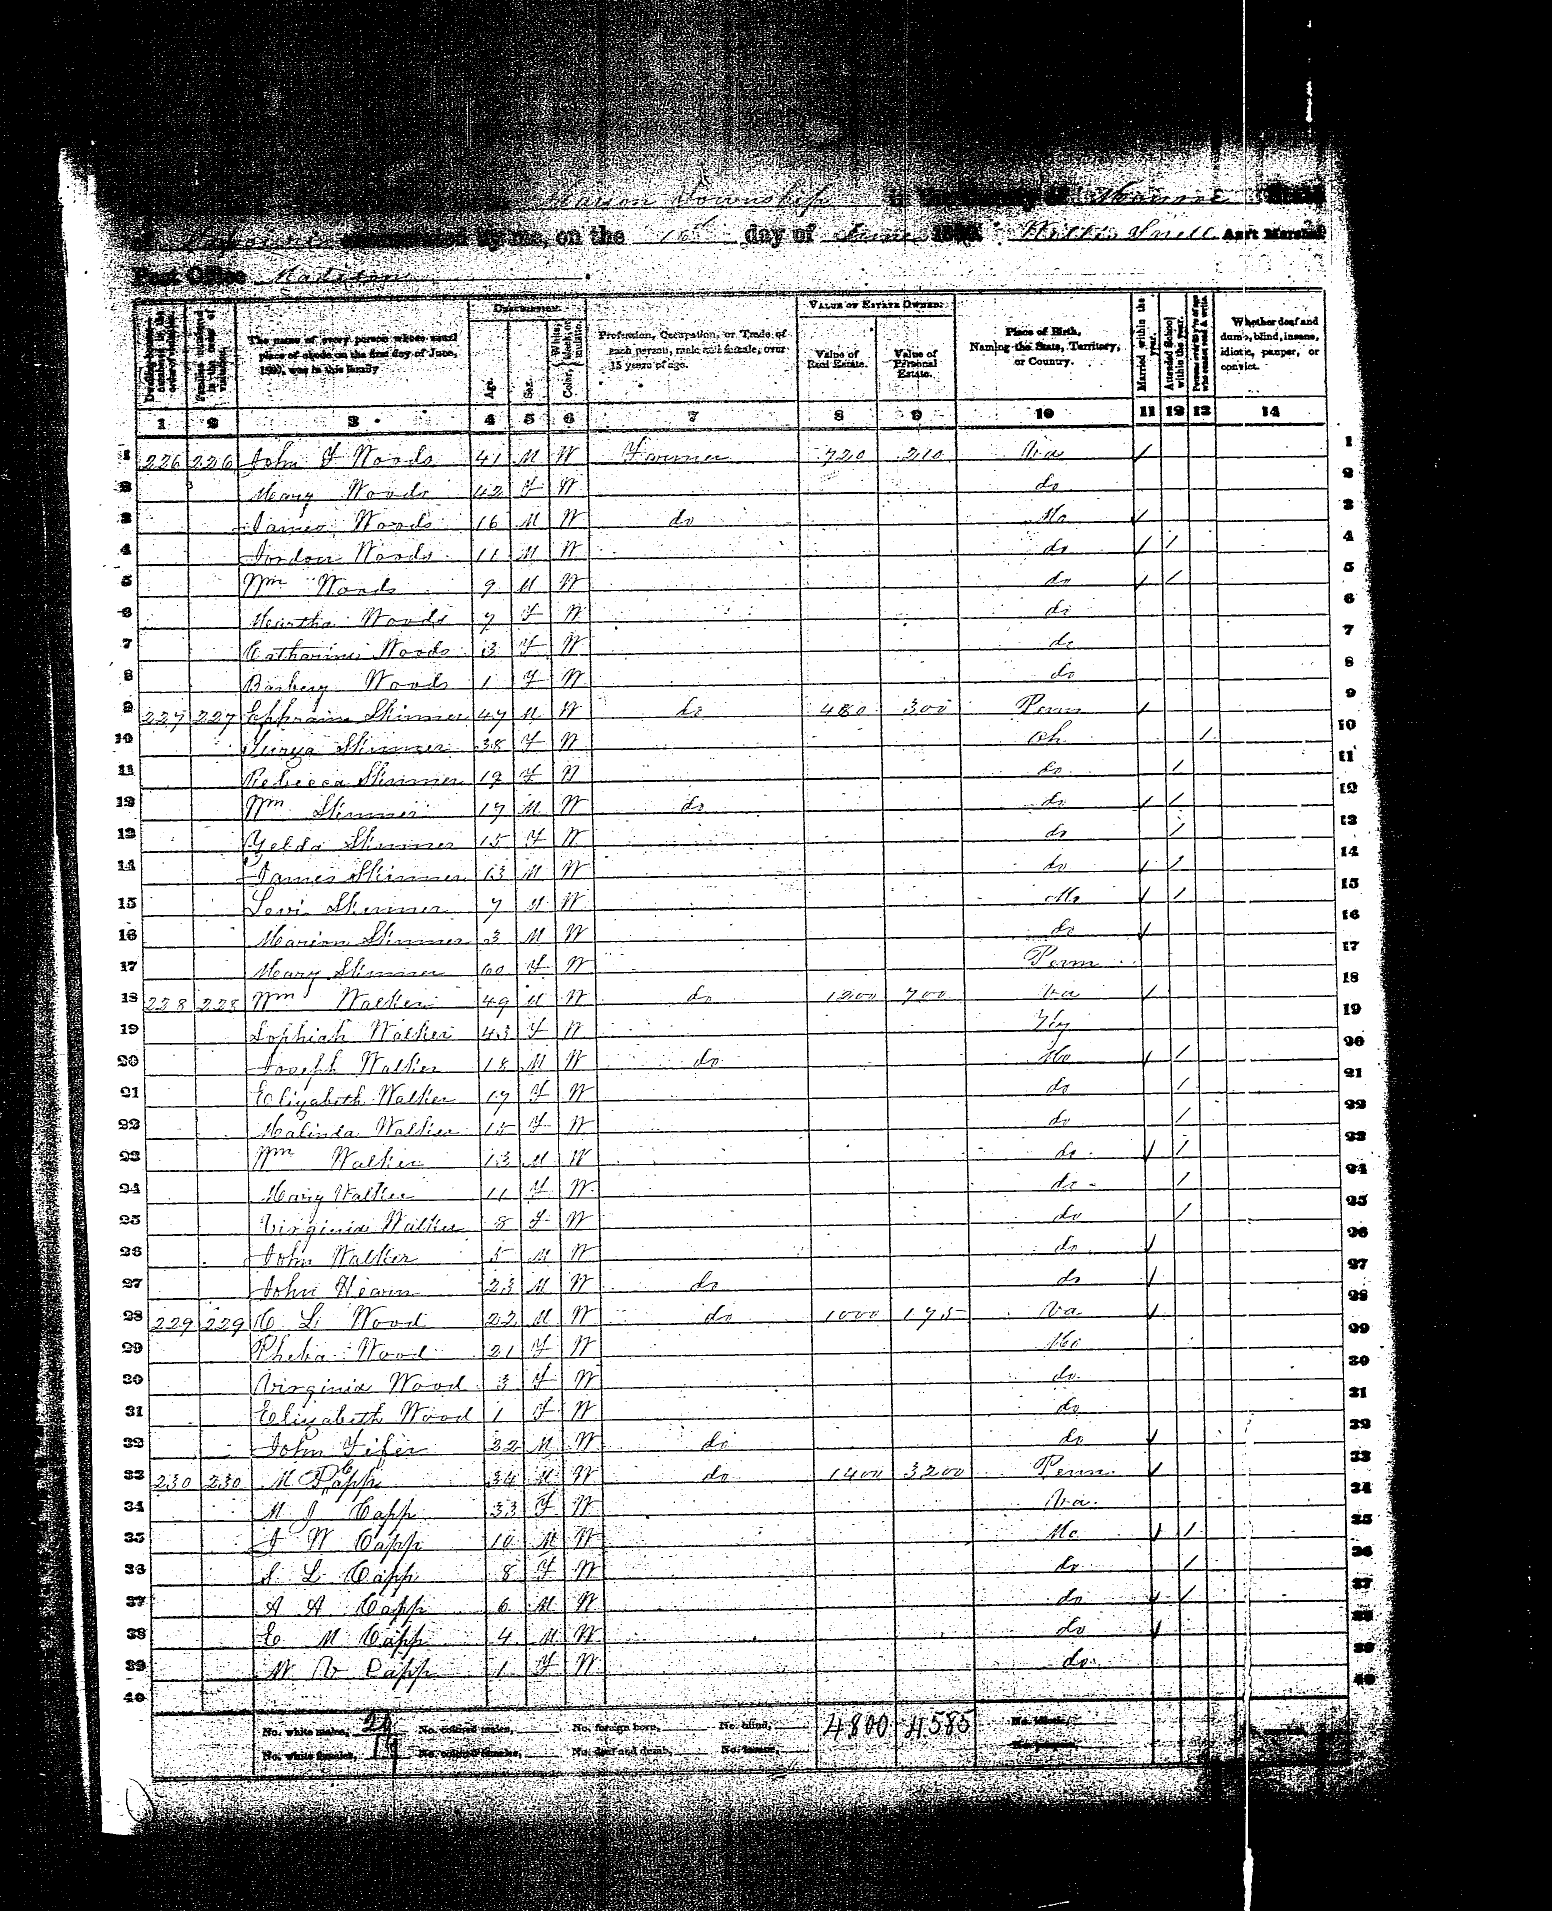 Township in the County of Monroe State
of enumerated by me, on the 16th day of June 1860. Ass't Marshal
Post Office Madison.
Dwelling-houses numbered in the order of visitation. Families numbered in the order of visitation. The name of every person whose usual place of abode on the first day of June, 1860, was in this family DESCRIPTION. Age. Sex. Color, White, black, or mulatto. Profession, Occupation, or Trade of each person, male and female, over 15 years of age. VALUE OF ESTATE OWNED. Value of Real Estate. Value of Personal Estate. Place of Birth, Naming the State, Territory, or Country. Married within the year. Attended School within the year. Whether deaf and dumb, blind, insane, idiotic, pauper, or convict.
1 2 3 4 5 6 7 8 9 10 11 12 13 14
1 226 226 John F Woods 41 M W Farmer 720 210 Va / 1
2 Mary Woods 42 F W do 2
3 James Woods 16 M W do Mo / 3
4 Jordon Woods 11 M W do / / 4
5 Wm Woods 9 M W do / / 5
6 Martha Woods 7 F W do 6
7 Catharine Woods 3 F W do 7
8 Barbery Woods 1 F W do 8
9 227 227 Ephraim Skinner 47 M W do 480 300 Penn / 9
10 Skinner 38 F W Oh / 10
11 Rebecca Skinner 19 F W do / 11
12 Wm Skinner 17 M W do do / / 12
13 Zelda Skinner 15 F W do / 13
14 James Skinner 13 M W do / / 14
15 Levi Skinner 7 M W Mo / / 15
16 Marion Skinner 3 M W do / 16
17 Mary Skinner 60 F W Penn 17
18 228 228 Wm Walker 49 M W do 1200 700 Va / 18
19 Sophiah Walker 43 F W Ky 19
20 Joseph Walker 18 M W do Mo / / 20
21 Elizabeth Walker 17 F W do / 21
22 Malinda Walker 15 F W do / 22
23 Wm Walker 13 M W do / / 23
24 Mary Walker 11 F W do / 24
25 Virginia Walker 8 F W do / 25
26 John Walker 5 M W do / 26
27 John Hearn 23 M W do do / 27
28 229 229 C L Wood 22 M W do 1000 175 Va / 28
29 Pheba Wood 21 F W Mo 29
30 Virginia Wood 3 F W do 30
31 Elizabeth Wood 1 F W do 31
32 John Fifer 22 M W do do / 32
33 230 230 M Capp 34 M W do 1400 3200 Penn / 33
34 M J Capp 33 F W Va 34
35 J W Capp 10 M W Mo / / 35
36 S L Capp 8 F W do / 36
37 A A Capp 6 M W do / / 37
38 E M Capp 4 M W do / 38
39 M V Capp 1 F W do 39
40 40
No. white males, 20 No. colored males, No. foreign born, No. blind, 4800 4585
No. white females, 19 No. colored females, No. deaf and dumb, No. insane,